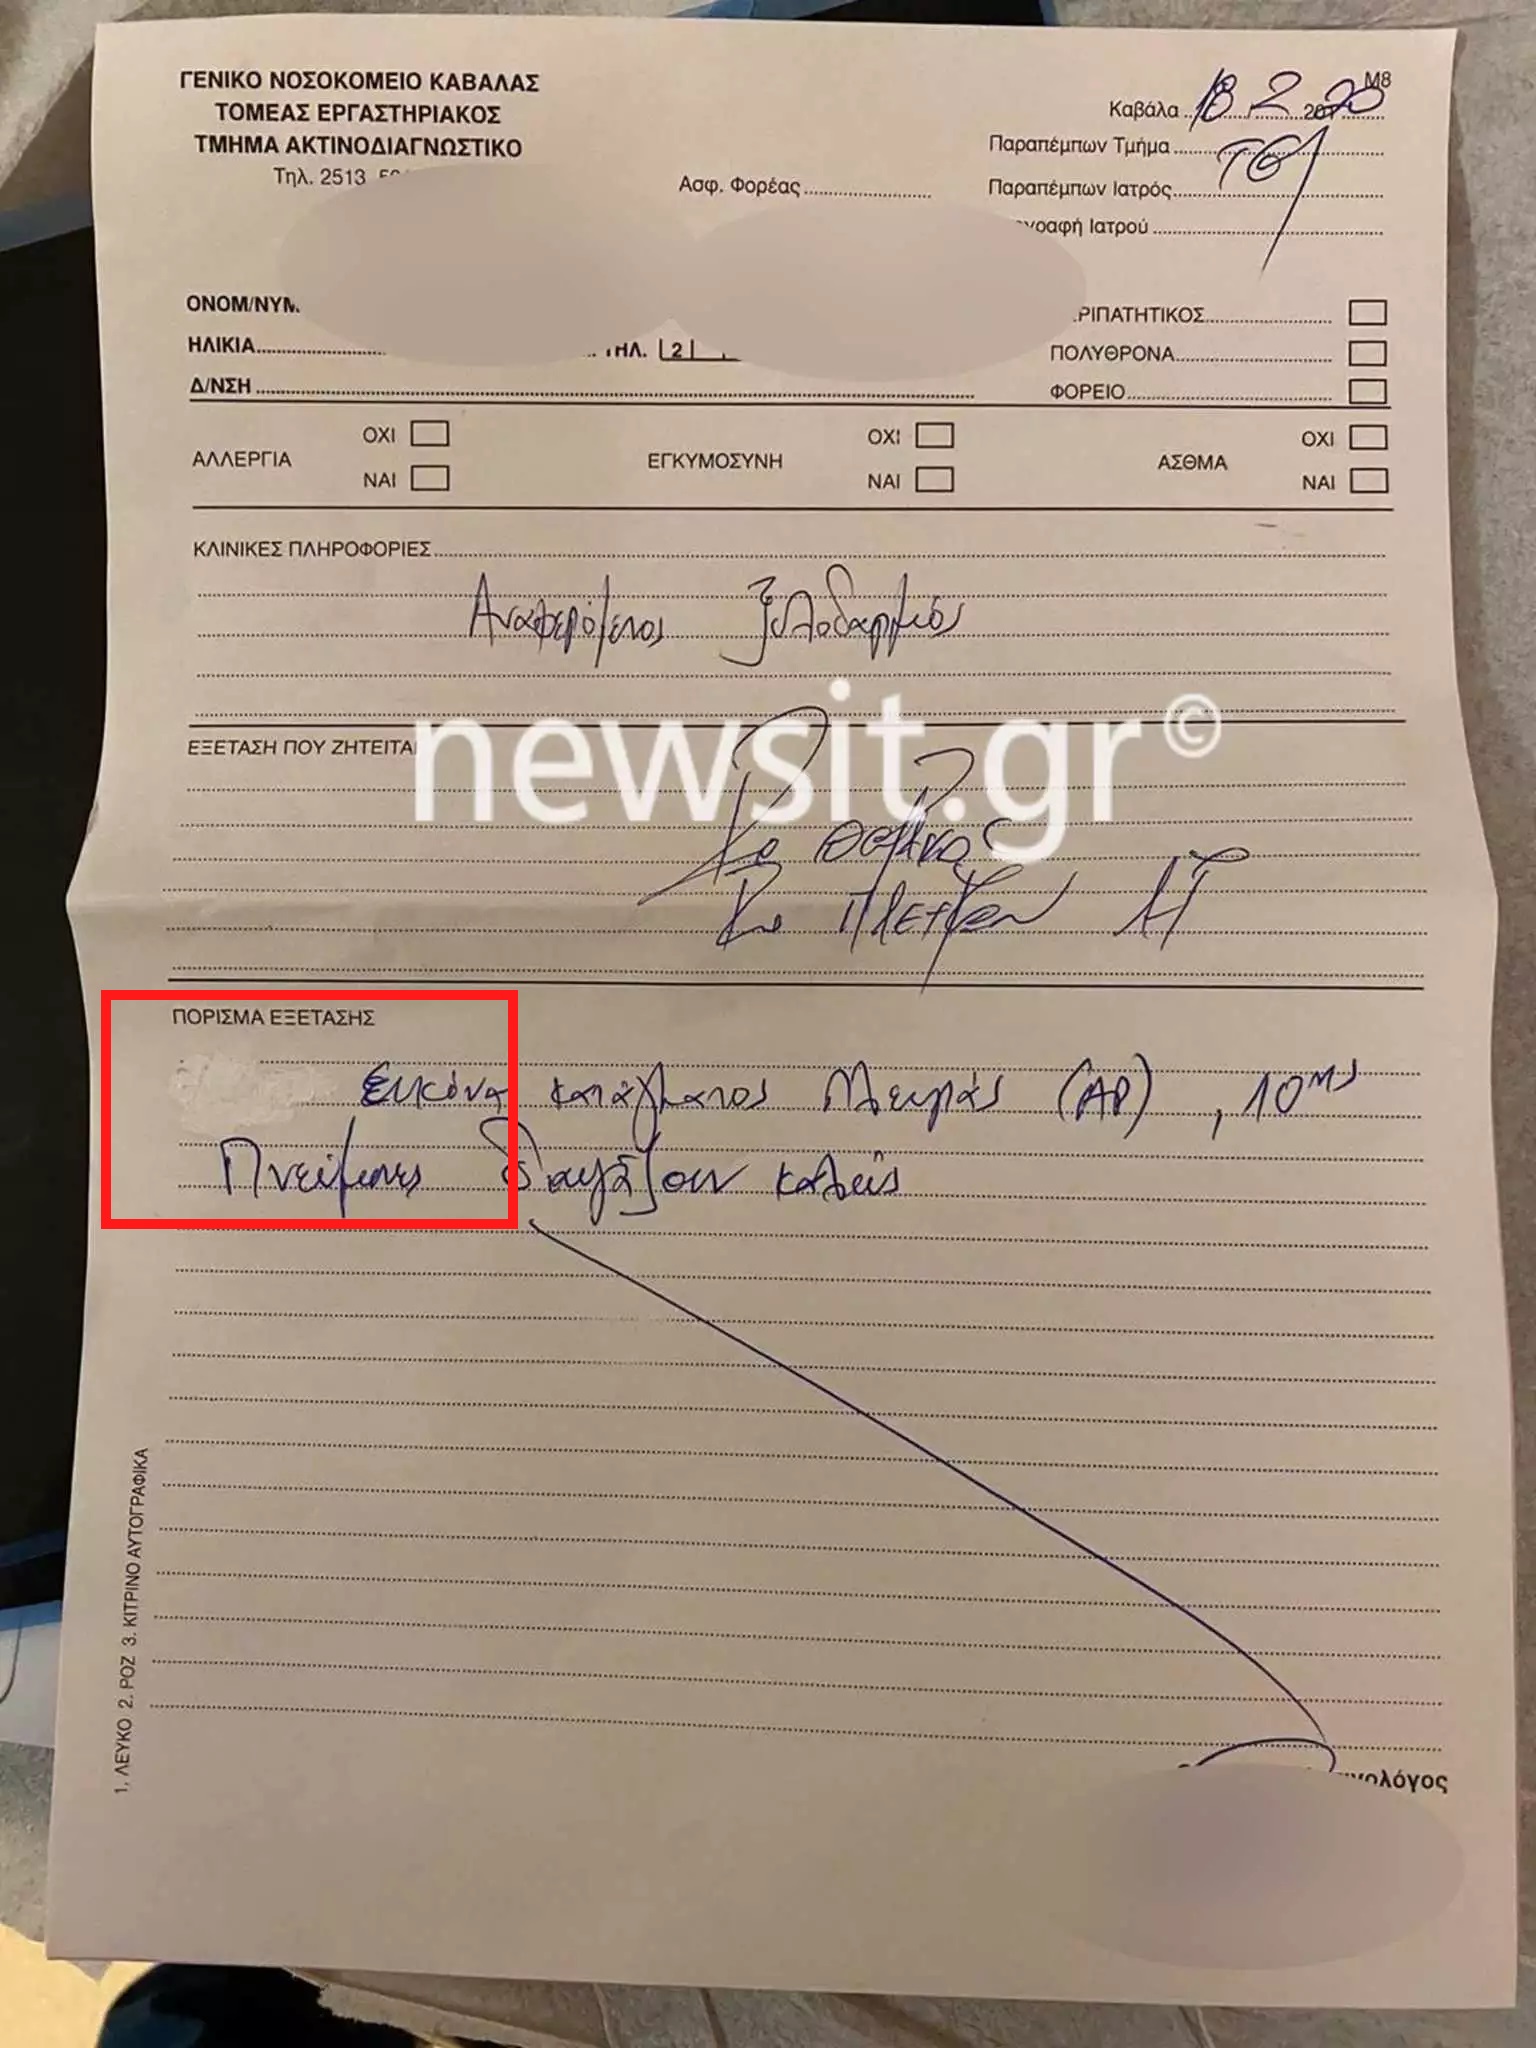 Μ8
ΓΕΝΙΚΟ ΝΟΣΟΚΟΜΕΙΟ ΚΑΒΑΛΑΣ
ΤΟΜΕΑΣ ΕΡΓΑΣΤΗΡΙΑΚΟΣ
ΤΜΗΜΑ ΑΚΤΙΝΟΔΙΑΓΝΩΣΤΙΚΟ
Τηλ. 2513
Καβάλα 18 2 2020
Παραπέμπων Τμήμα ΤΕΠ
Ασφ. Φορέας
Παραπέμπων Ιατρός
Ιατρού
ΗΛΙΚΙΑ
ΤΗΛ. 2
Δ/ΝΣΗ
ΠΟΛΥΘΡΟΝΑ
ΦΟΡΕΙΟ
ΑΛΛΕΡΓΙΑ ΟΧΙ ΝΑΙ
ΕΓΚΥΜΟΣΥΝΗ ΟΧΙ ΝΑΙ
ΑΣΘΜΑ ΟΧΙ ΝΑΙ
ΚΛΙΝΙΚΕΣ ΠΛΗΡΟΦΟΡΙΕΣ
Αναφερόμενος Ξυλοδαρμός
newsit.gr©
ΕΞΕΤΑΣΗ ΠΟΥ ΖΗΤΕΙΤΑΙ
Ro θώρακος
Ro πλευρών
ΠΟΡΙΣΜΑ ΕΞΕΤΑΣΗΣ
Εικόνα κατάγματος πλευράς (ΑΡ), 10ης
Πνεύμονες διαυγάζουν καλώς
1. ΛΕΥΚΟ 2. ΡΟΖ 3. ΚΙΤΡΙΝΟ ΑΥΤΟΓΡΑΦΙΚΑ